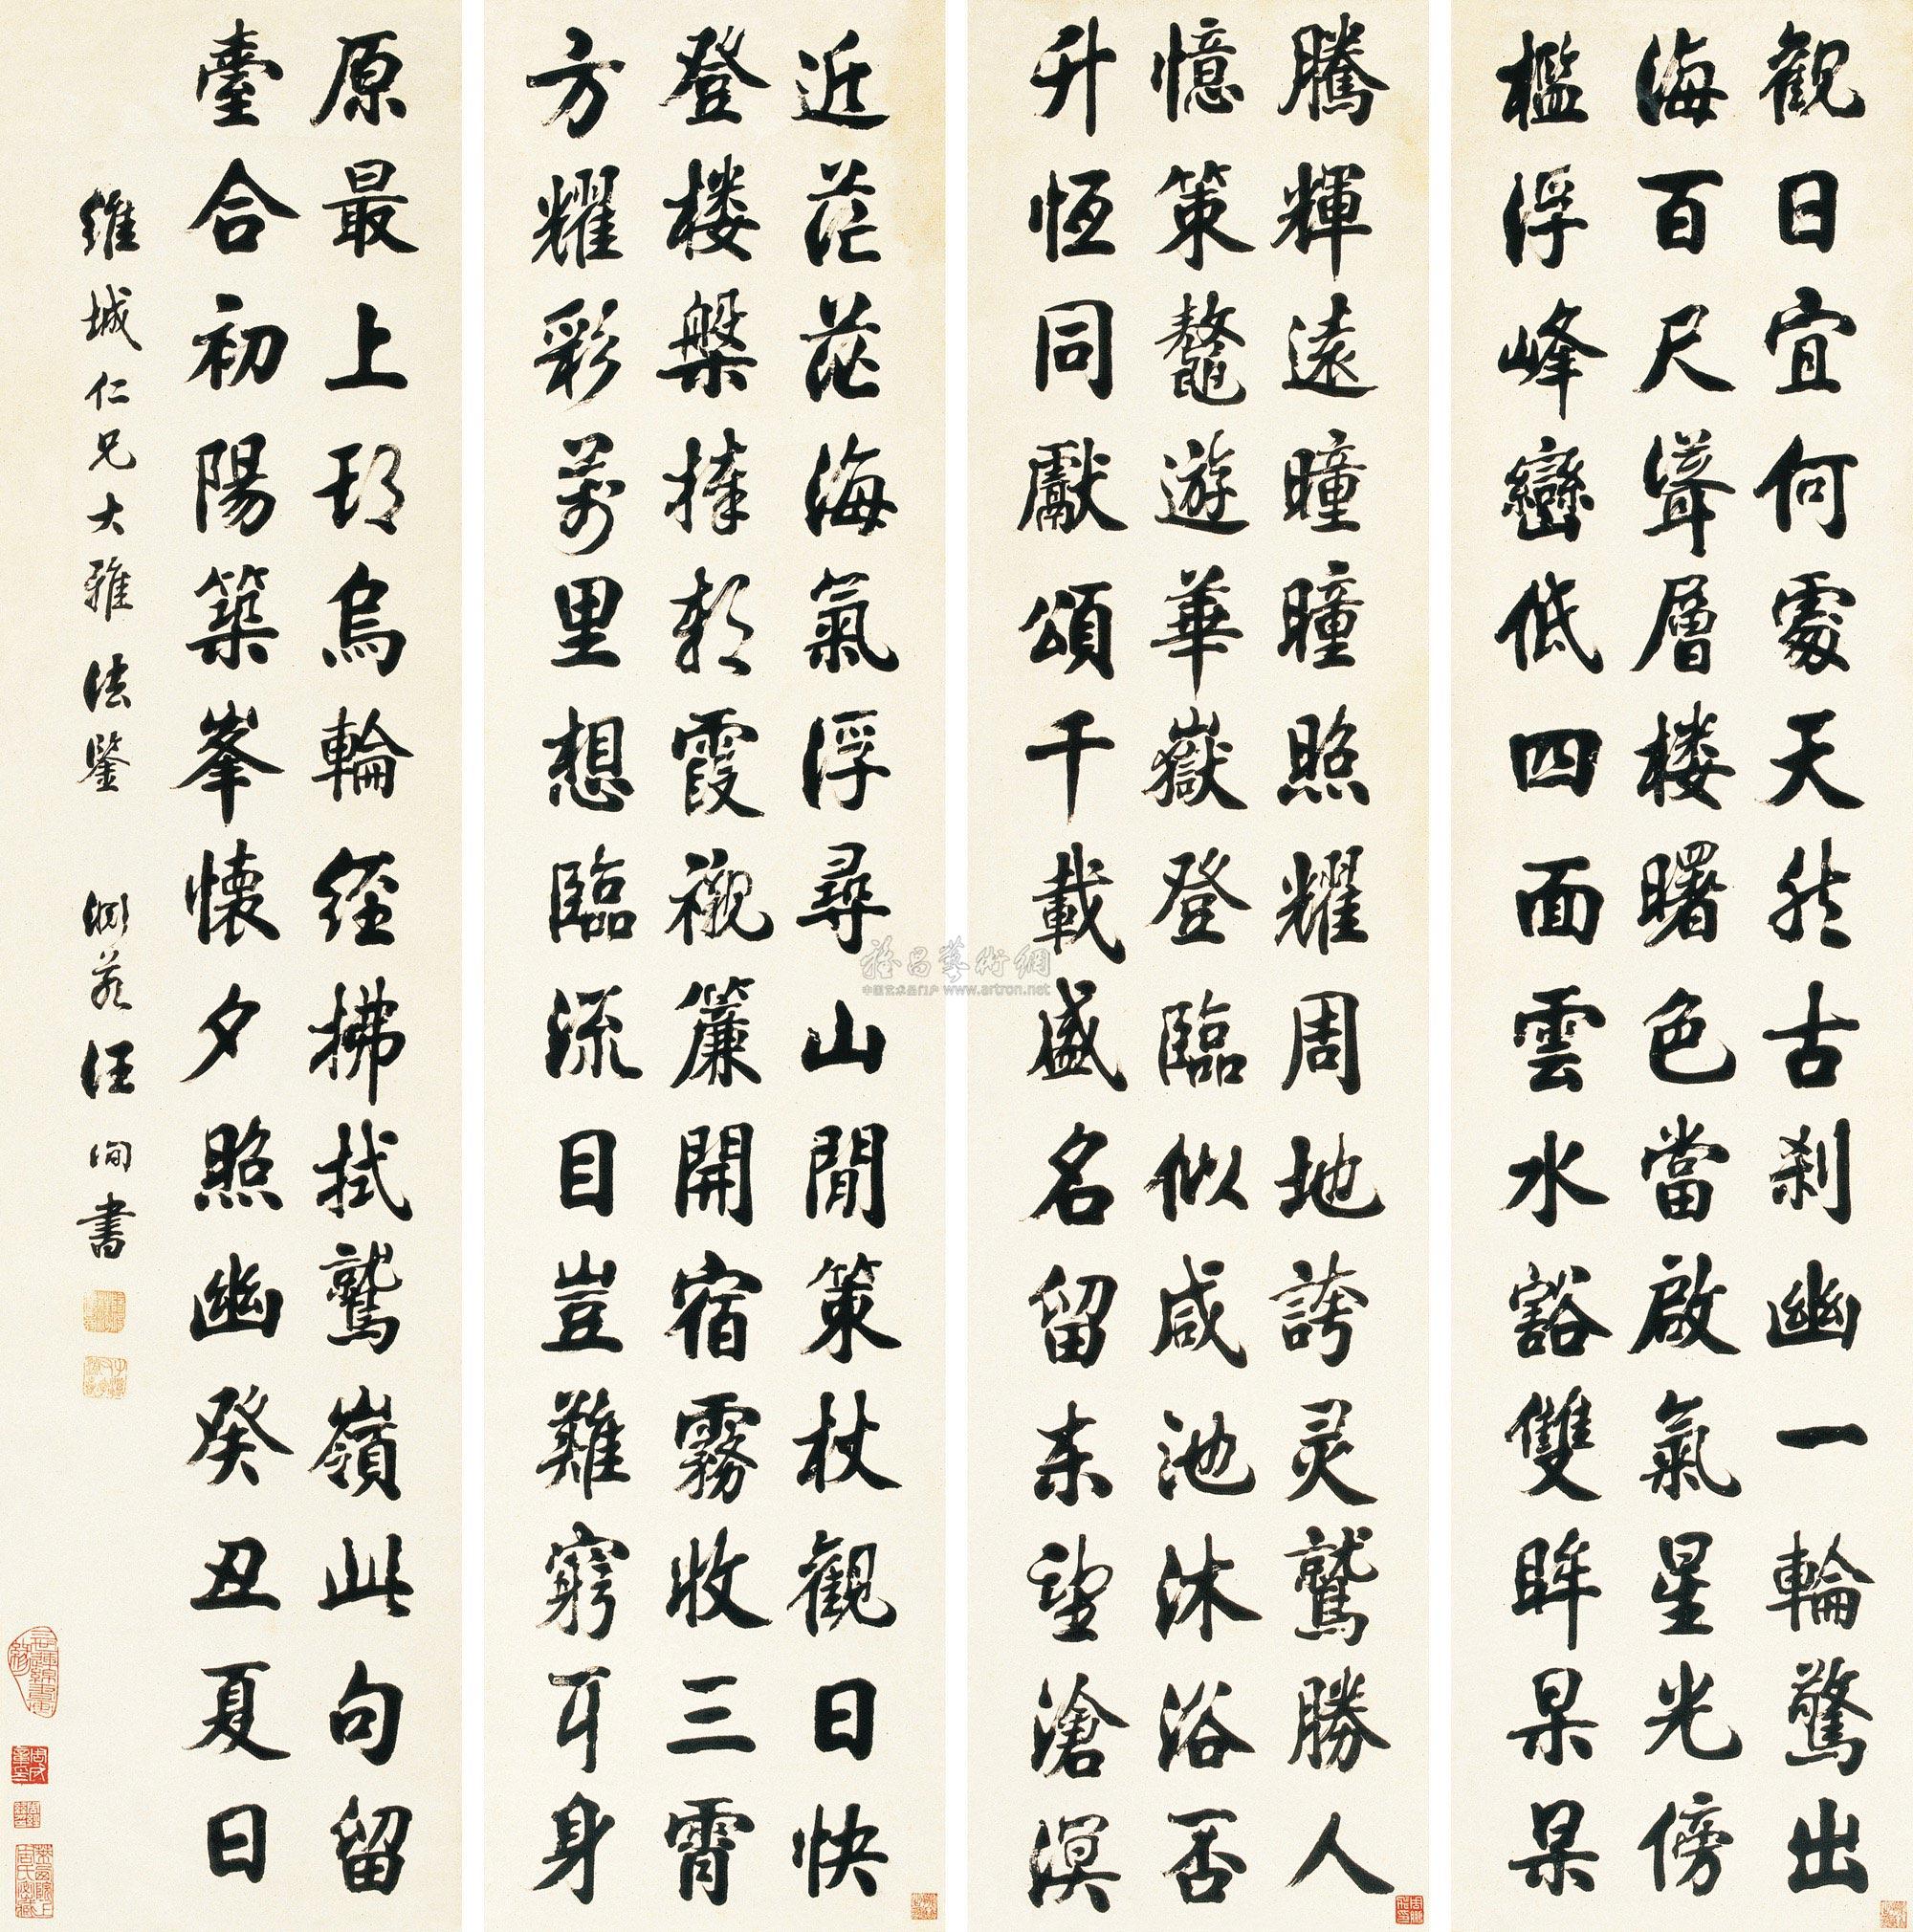 觀日宜何處天然古刹幽一輪驚出
海百尺聳層楼曙色當啟氣星光傍
檻浮峰巒低四面雲水豁雙眸杲杲
騰輝遠曈曈照耀周地誇灵鷲勝人
憶策鼇遊華嶽登臨似咸池沐浴否
升恆同獻頌千載盛名留东望滄溟
近茫茫海氣浮尋山閒策杖觀日快
登楼槃捧朝霞襯簾開宿霧收三霄
方耀彩萬里想臨流目豈難窮耳身
原最上頭烏輪經拂拭鷲嶺此句留
臺合初陽築峯懷夕照幽癸丑夏日
維城仁兄大雅法鑒 淵若汪洵書
雅昌藝術網
中国艺术品门户 www.artron.net